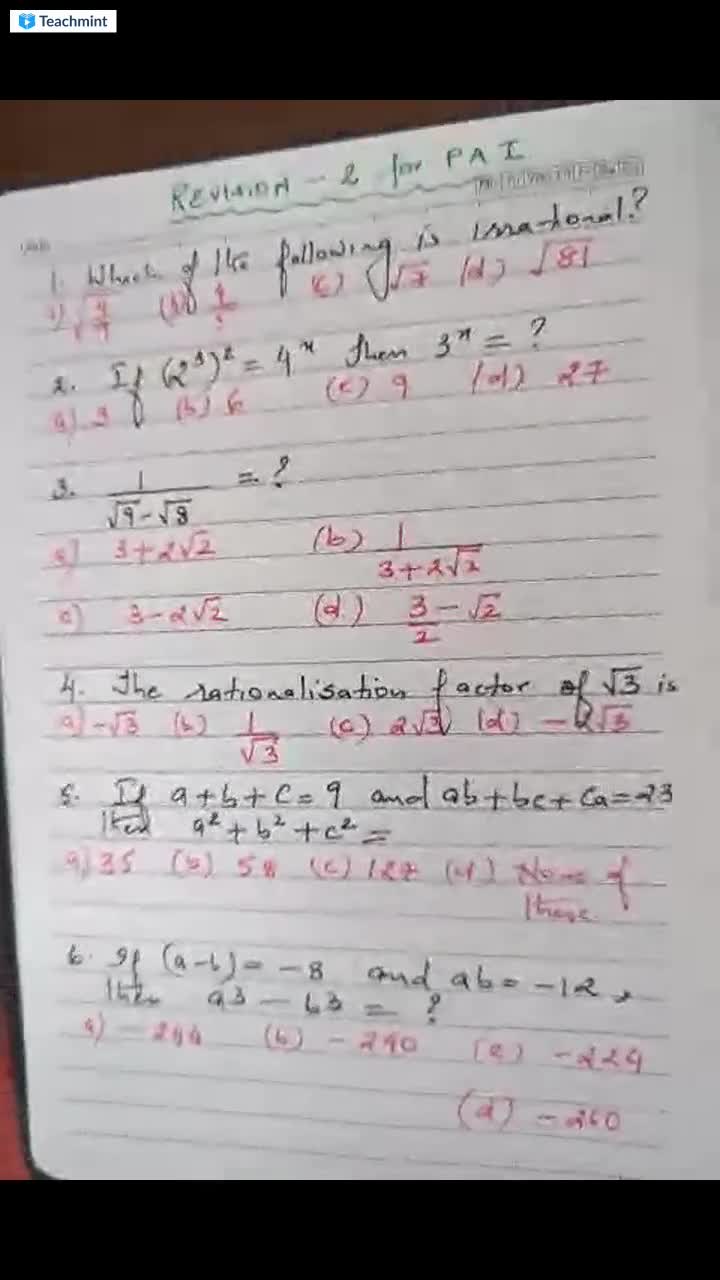 Teachmint
REVISION - 2 for PA I
1. Which of the following is irrational?
a) √(4/9) (b) (c) √7 (d) √81
2. If (2³)² = 4ˣ then 3ˣ = ?
a) 3 (b) 6 (c) 9 (d) 27
3. 1/(√9-√8) = ?
a) 3+2√2 (b) 1/(3+2√2)
c) 3-2√2 (d.) 3/2 - √2
4. The rationalisation factor of √3 is
a) -√3 (b) 1/√3 (c) 2√3 (d) -2√3
5. If a+b+c=9 and ab+bc+ca=23
then a²+b²+c² =
a) 35 (b) 58 (c) 127 (d) None of
these
6. If (a-b)= -8 and ab= -12,
then a3 - b3 = ?
a) -244 (b) -240 (c) -224
(d) -260